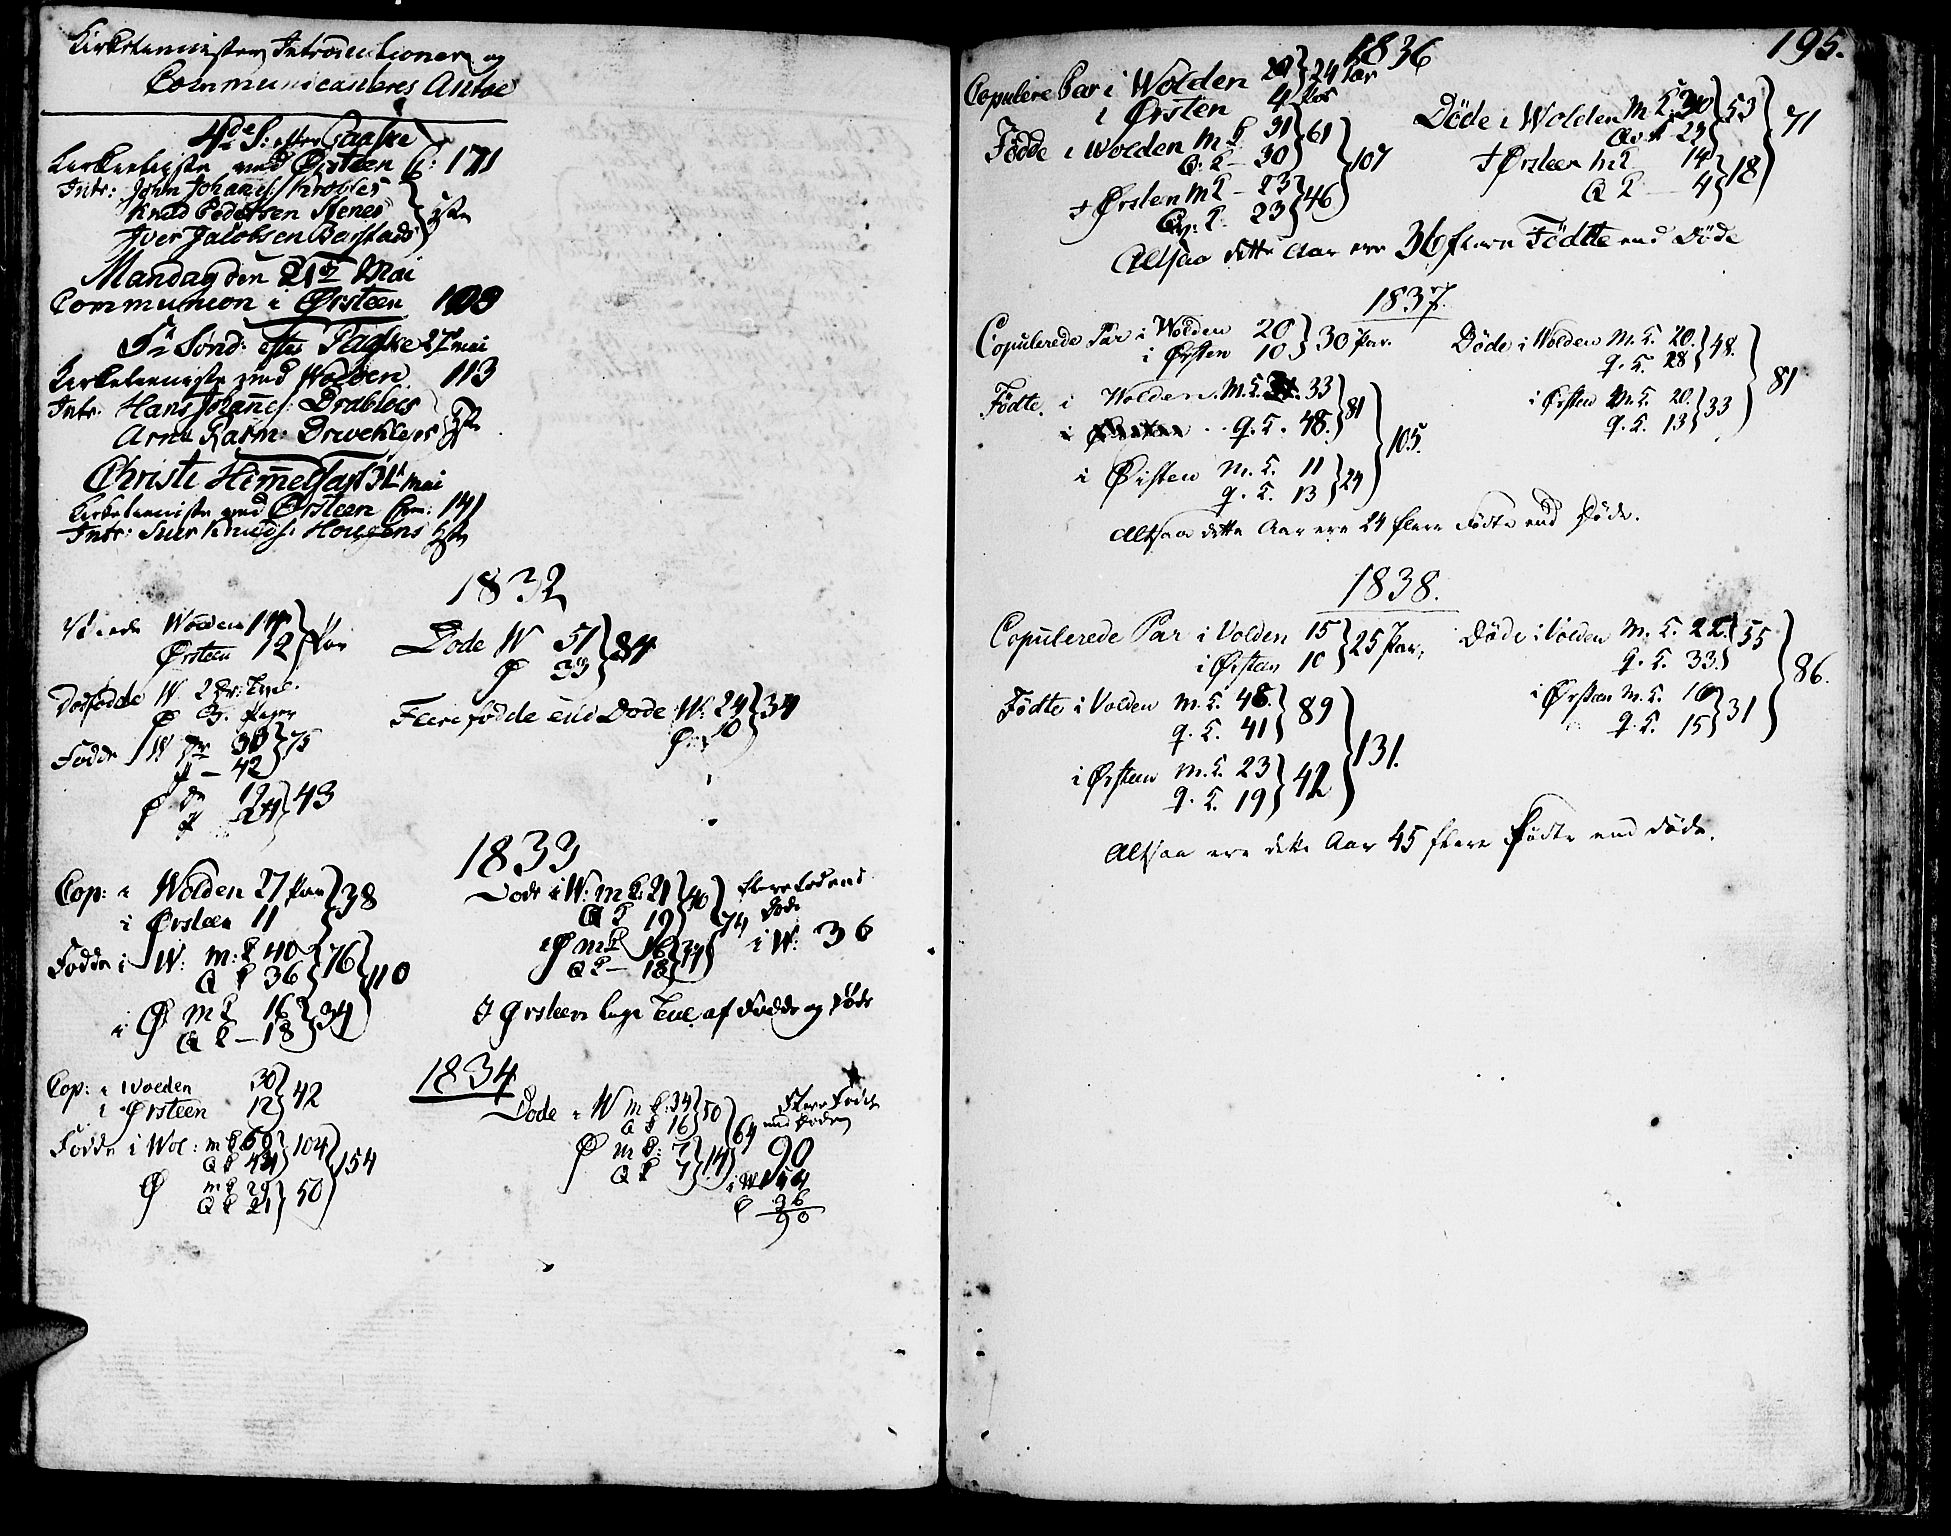 Kirketienister, Introductioner og
Communicanteres Antal
4de S: efter Paaske
Kirketieniste med Ørsteen C: 171
Intr: John Johanes: Krøbles
Knud Pedersen Stenes
Iver Jacobsen Barstads
Mandag den 21de Mai
Communion i Ørsteen 103
5te Sønd: efter Paaske 27de mai
Kirketieniste med Wolden 113
Intr: Hans Johanes: Drabløs
Arne Rasm:
Christi Himelfart 31te mai
Kirketieniste med Ørsteen Com: 141
Intr: Siur Knuds: Hougens
1832
Viede Wolden 14
Ørsteen 12 Par
Døde W 51
Ø 33 } 84
Dødfødde W. 2
Ø
Flere fødde end Døde W. 24 } 34
Ø 10
Fødde W 33 } 75
42
Ø 19 } 43
24
1833
Cop: i Wolden 27 Par } 38
i Ørsteen 11
Døde i W: m k: 21 } 40 } 74
Q k 19
Flere Fødde end Døde
i W: 36
Fødde i W: m: k 40 } 76 } 110
Q k 36
Ø m k 16 } 34
Q k — 18
i Ø m k 16 } 34
Q k — 18
I Ørsteen lige Tal af Fødde og Døde
1834
Cop: i Wolden 30 } 42
i Ørsteen 12
Døde i W m k: 34 } 50 } 64
Q k 16
Flere Fødde
end Døde
90
Fødde i Wol: m k 60 } 104 } 154
Q k 44
Ø m k: 7 } 14
Q k 7
i W 54
Ø 36
90
Ø m k 29 } 50
Q k 21
195.
1836
Copulere Par i Wolden 20 } 24 Par
i Ørsten 4 Par
Døde i Wolden M K 30 } 53 } 71
Qv K 23
Fødde i Wolden M K 31 } 61 } 107
Q: K — 30
I Ørsten M K 14 } 18
Q K — 4
I Ørsten M K — 23 } 46
Qv: K. 23
Altsaa dette Aar ere 36 flere Fødte end Døde
1837.
Copulerede Par i Wolden 20 } 30 Par.
i Ørsten 10
Døde i Wolden M. K. 20. } 48. } 81
q. K. 28
Fødte, i Wolden. M. K. 33 } 81 } 105.
q. K. 48.
i Ørsten M. K. 20. } 33
q. K. 13
i Ørsten M. K. 11 } 24
q. K. 13
Altsaa dette Aar ere 24 flere Fødte end Døde.
1838.
Copulerede Par i Volden 15 } 25 Par,
i Ørsten 10
Døde i Volden M. K. 22. } 55 } 86.
q. K. 33.
Fødte i Volden M. K. 48. } 89 } 131.
q. K. 41
i Ørsten M. K. 16 } 31
q. K. 15
i Ørsten M. K. 23 } 42
q. K. 19
Altsaa ere dette Aar 45 flere Fødte end døde.